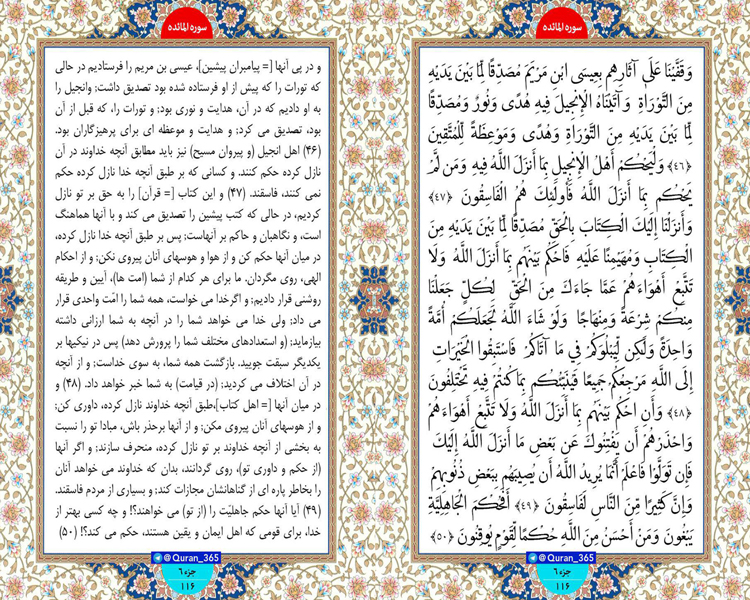 سوره المائده
وَقَفَّيْنَا عَلَىٰ آثَارِهِم بِعِيسَى ابْنِ مَرْيَمَ مُصَدِّقًا لِّمَا بَيْنَ يَدَيْهِ
مِنَ التَّوْرَاةِ وَآتَيْنَاهُ الْإِنجِيلَ فِيهِ هُدًى وَنُورٌ وَمُصَدِّقًا
لِّمَا بَيْنَ يَدَيْهِ مِنَ التَّوْرَاةِ وَهُدًى وَمَوْعِظَةً لِّلْمُتَّقِينَ
﴿٤٦﴾ وَلْيَحْكُمْ أَهْلُ الْإِنجِيلِ بِمَا أَنزَلَ اللَّهُ فِيهِ وَمَن لَّمْ
يَحْكُم بِمَا أَنزَلَ اللَّهُ فَأُولَٰئِكَ هُمُ الْفَاسِقُونَ ﴿٤٧﴾
وَأَنزَلْنَا إِلَيْكَ الْكِتَابَ بِالْحَقِّ مُصَدِّقًا لِّمَا بَيْنَ يَدَيْهِ مِنَ
الْكِتَابِ وَمُهَيْمِنًا عَلَيْهِ فَاحْكُم بَيْنَهُم بِمَا أَنزَلَ اللَّهُ وَلَا
تَتَّبِعْ أَهْوَاءَهُمْ عَمَّا جَاءَكَ مِنَ الْحَقِّ لِكُلٍّ جَعَلْنَا
مِنكُمْ شِرْعَةً وَمِنْهَاجًا وَلَوْ شَاءَ اللَّهُ لَجَعَلَكُمْ أُمَّةً
وَاحِدَةً وَلَٰكِن لِّيَبْلُوَكُمْ فِي مَا آتَاكُمْ فَاسْتَبِقُوا الْخَيْرَاتِ
إِلَى اللَّهِ مَرْجِعُكُمْ جَمِيعًا فَيُنَبِّئُكُم بِمَا كُنتُمْ فِيهِ تَخْتَلِفُونَ
﴿٤٨﴾ وَأَنِ احْكُم بَيْنَهُم بِمَا أَنزَلَ اللَّهُ وَلَا تَتَّبِعْ أَهْوَاءَهُمْ
وَاحْذَرْهُمْ أَن يَفْتِنُوكَ عَن بَعْضِ مَا أَنزَلَ اللَّهُ إِلَيْكَ
فَإِن تَوَلَّوْا فَاعْلَمْ أَنَّمَا يُرِيدُ اللَّهُ أَن يُصِيبَهُم بِبَعْضِ ذُنُوبِهِمْ
وَإِنَّ كَثِيرًا مِّنَ النَّاسِ لَفَاسِقُونَ ﴿٤٩﴾ أَفَحُكْمَ الْجَاهِلِيَّةِ
يَبْغُونَ وَمَنْ أَحْسَنُ مِنَ اللَّهِ حُكْمًا لِّقَوْمٍ يُوقِنُونَ ﴿٥٠﴾
@Quran_365
جزء ۶
۱۱۶
سوره المائده
و در پی آنها [= پیامبران پیشین]، عیسی بن مریم را فرستادیم در حالی
که تورات را که پیش از او فرستاده شده بود تصدیق داشت; وانجیل را
به او دادیم که در آن، هدایت و نوری بود; و تورات را، که قبل از آن
بود، تصدیق می کرد; و هدایت و موعظه ای برای پرهیزگاران بود.
(۴۶) اهل انجیل (و پیروان مسیح) نیز باید مطابق آنچه خداوند در آن
نازل کرده حکم کنند. و کسانی که بر طبق آنچه خدا نازل کرده حکم
نمی کنند، فاسقند. (۴۷) و این کتاب [= قرآن] را به حق بر تو نازل
کردیم، در حالی که کتب پیشین را تصدیق می کند و با آنها هماهنگ
است، و نگاهبان و حاکم بر آنهاست; پس بر طبق آنچه خدا نازل کرده،
در میان آنها حکم کن و از هوا و هوسهای آنان پیروی نکن; و از احکام
الهی، روی مگردان. ما برای هر کدام از شما (امت ها)، آیین و طریقه
روشنی قرار دادیم; و اگرخدا می خواست، همه شما را امّت واحدی قرار
می داد; ولی خدا می خواهد شما را در آنچه به شما ارزانی داشته
بیازماید; (و استعدادهای مختلف شما را پرورش دهد) پس در نیکیها بر
یکدیگر سبقت جویید. بازگشت همه شما، به سوی خداست; و از آنچه
در آن اختلاف می کردید; (در قیامت) به شما خبر خواهد داد. (۴۸) و
در میان آنها [= اهل کتاب]،طبق آنچه خداوند نازل کرده، داوری کن;
و از هوسهای آنان پیروی مکن; و از آنها برحذر باش، مبادا تو را نسبت
به بخشی از آنچه خداوند بر تو نازل کرده، منحرف سازند; و اگر آنها
(از حکم و داوری تو)، روی گردانند، بدان که خداوند می خواهد آنان
را بخاطر پاره ای از گناهانشان مجازات کند; و بسیاری از مردم فاسقند.
(۴۹) آیا آنها حکم جاهلیّت را (از تو) می خواهند؟! و چه کسی بهتر از
خدا، برای قومی که اهل ایمان و یقین هستند، حکم می کند؟! (۵۰)
@Quran_365
جزء ۶
۱۱۶